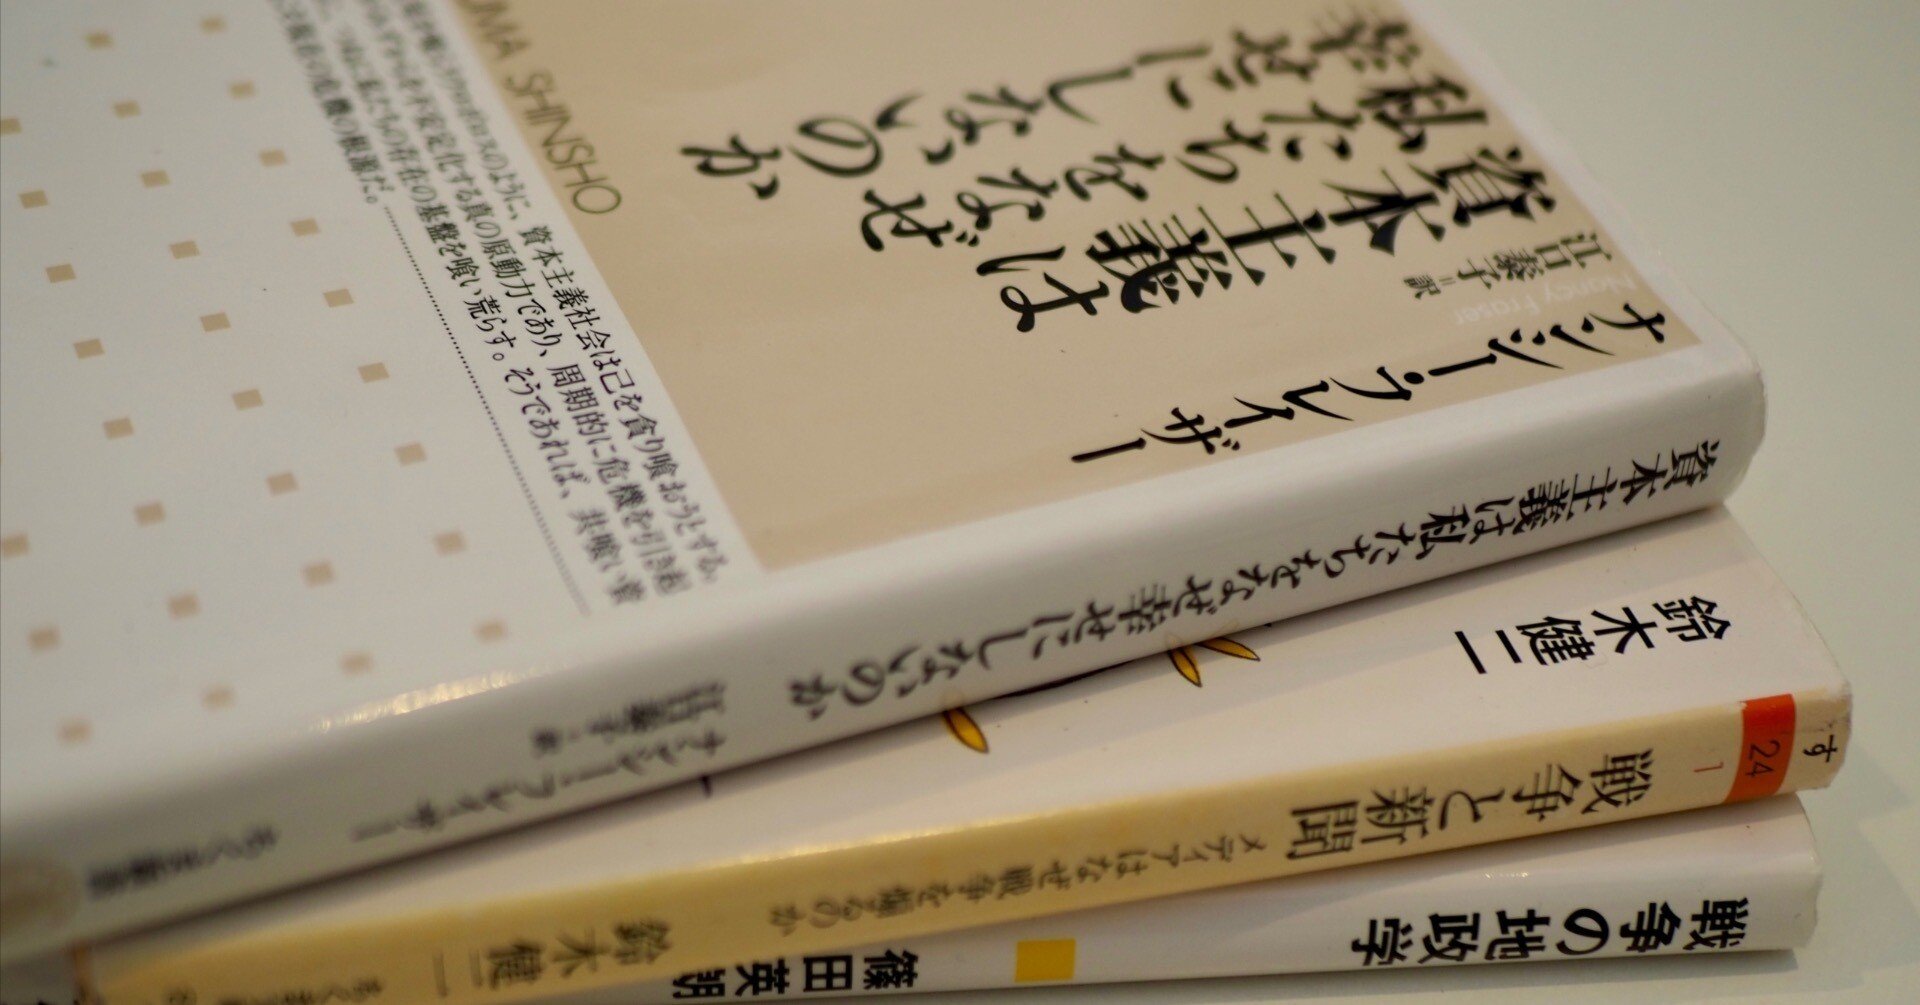 ナンシー・フレイザー
Nancy Fraser
江口泰子=訳
資本主義は
私たちをなぜ
幸せにしないのか
UMA SHINSHO
ウロボロスのように、資本主義社会は己を貪り喰おうとする。
不安定化する真の原動力であり、周期的に危機を引き起
つねに私たちの存在の基盤を喰い荒らす。そうであれば、共喰い資
の危機の根源だ。
資本主義は私たちをなぜ幸せにしないのか
ナンシー・フレイザー
江口泰子=訳
ちくま新書
鈴木健二
戦争と新聞
メディアはなぜ戦争を煽るのか
鈴木健二
す
24
1
戦争の地政学
篠田英朗